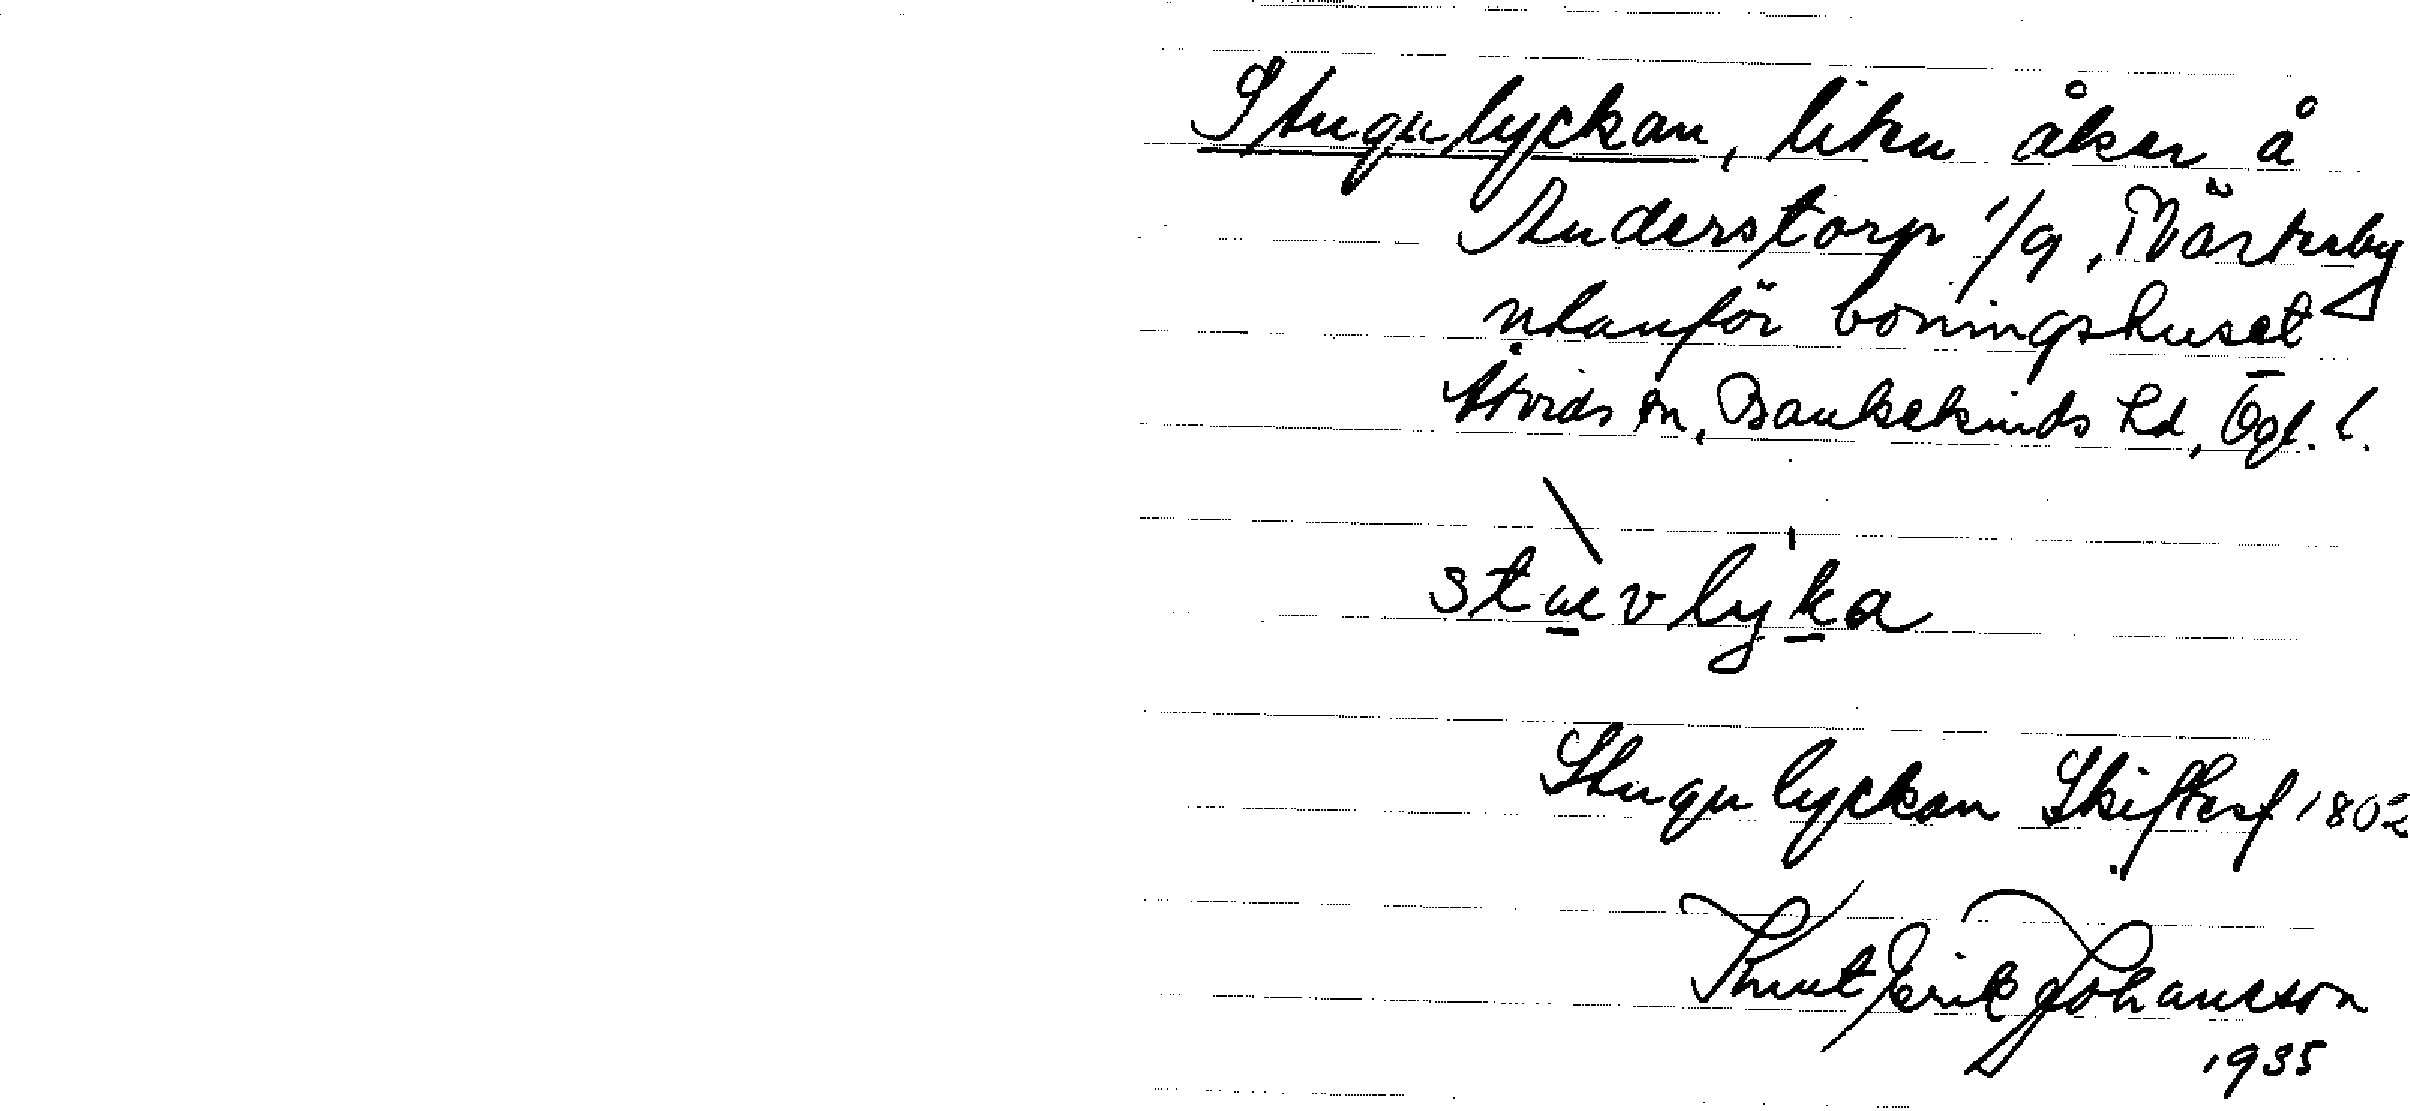 Stugulyckan, liten åker å
Anderstorp 1/9, Närstorby
utanför boningshuset
Åtvids sn, Bankekinds hd, Ögl. l.
stuvlyka
Stugulyckan Skiftesf 1802
Knut Erik Johansson
1935